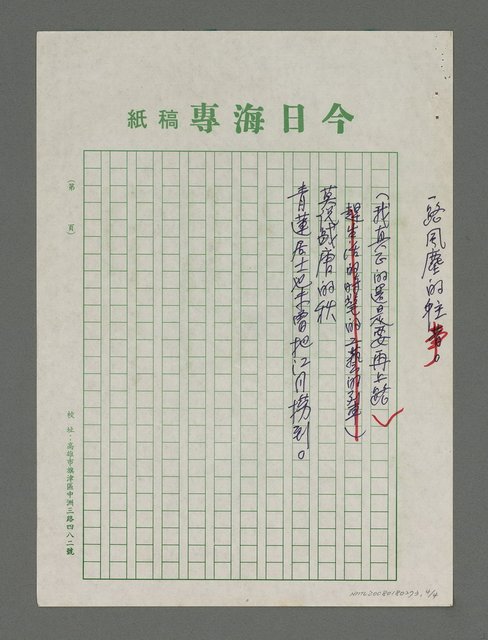 今日海專稿紙
一路風塵的
（我真正的還是要再上路
趕生活的時髦的工藝的列車）
莫說戰唐的秋
青蓮居士也未曾把江月撈到。
（第　頁）
校址：高雄市旗津區中洲三路四八二號
NMTL20080180273, 4/4